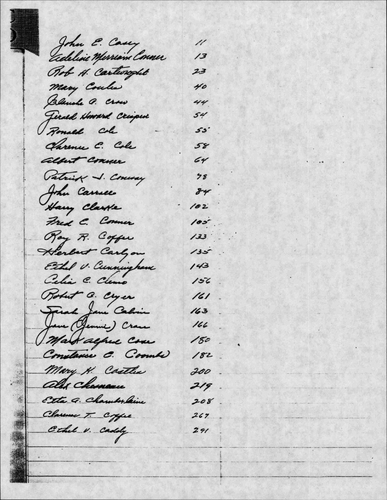 John E. Casey 11
Adeline Merriam Conner 13
Rob H. Cartwright 23
Mary Coulis 40
Blanche A. Crow 44
Gerald Howard Crispen 54
Ronald Cole 55
Clarence C. Cole 58
Albert Conner 64
Patrick J. Conway 78
John Carroll 84
Harry Clarke 102
Fred C. Conner 105
Roy R. Coffee 133
Herbert Carlson 135
Ethel V. Cunningham 143
Celia C. Clemo 156
Robert A. Cryer 161
Sarah Jane Calvin 163
Jane (Jennie) Crane 166
Alfred Case 180
Constance C. Coombs 182
Mary H. Castle 200
Alex 219
Etta A. Chamberlaine 208
Clarence T. Coffee 267
Ethel V. Caddy 291